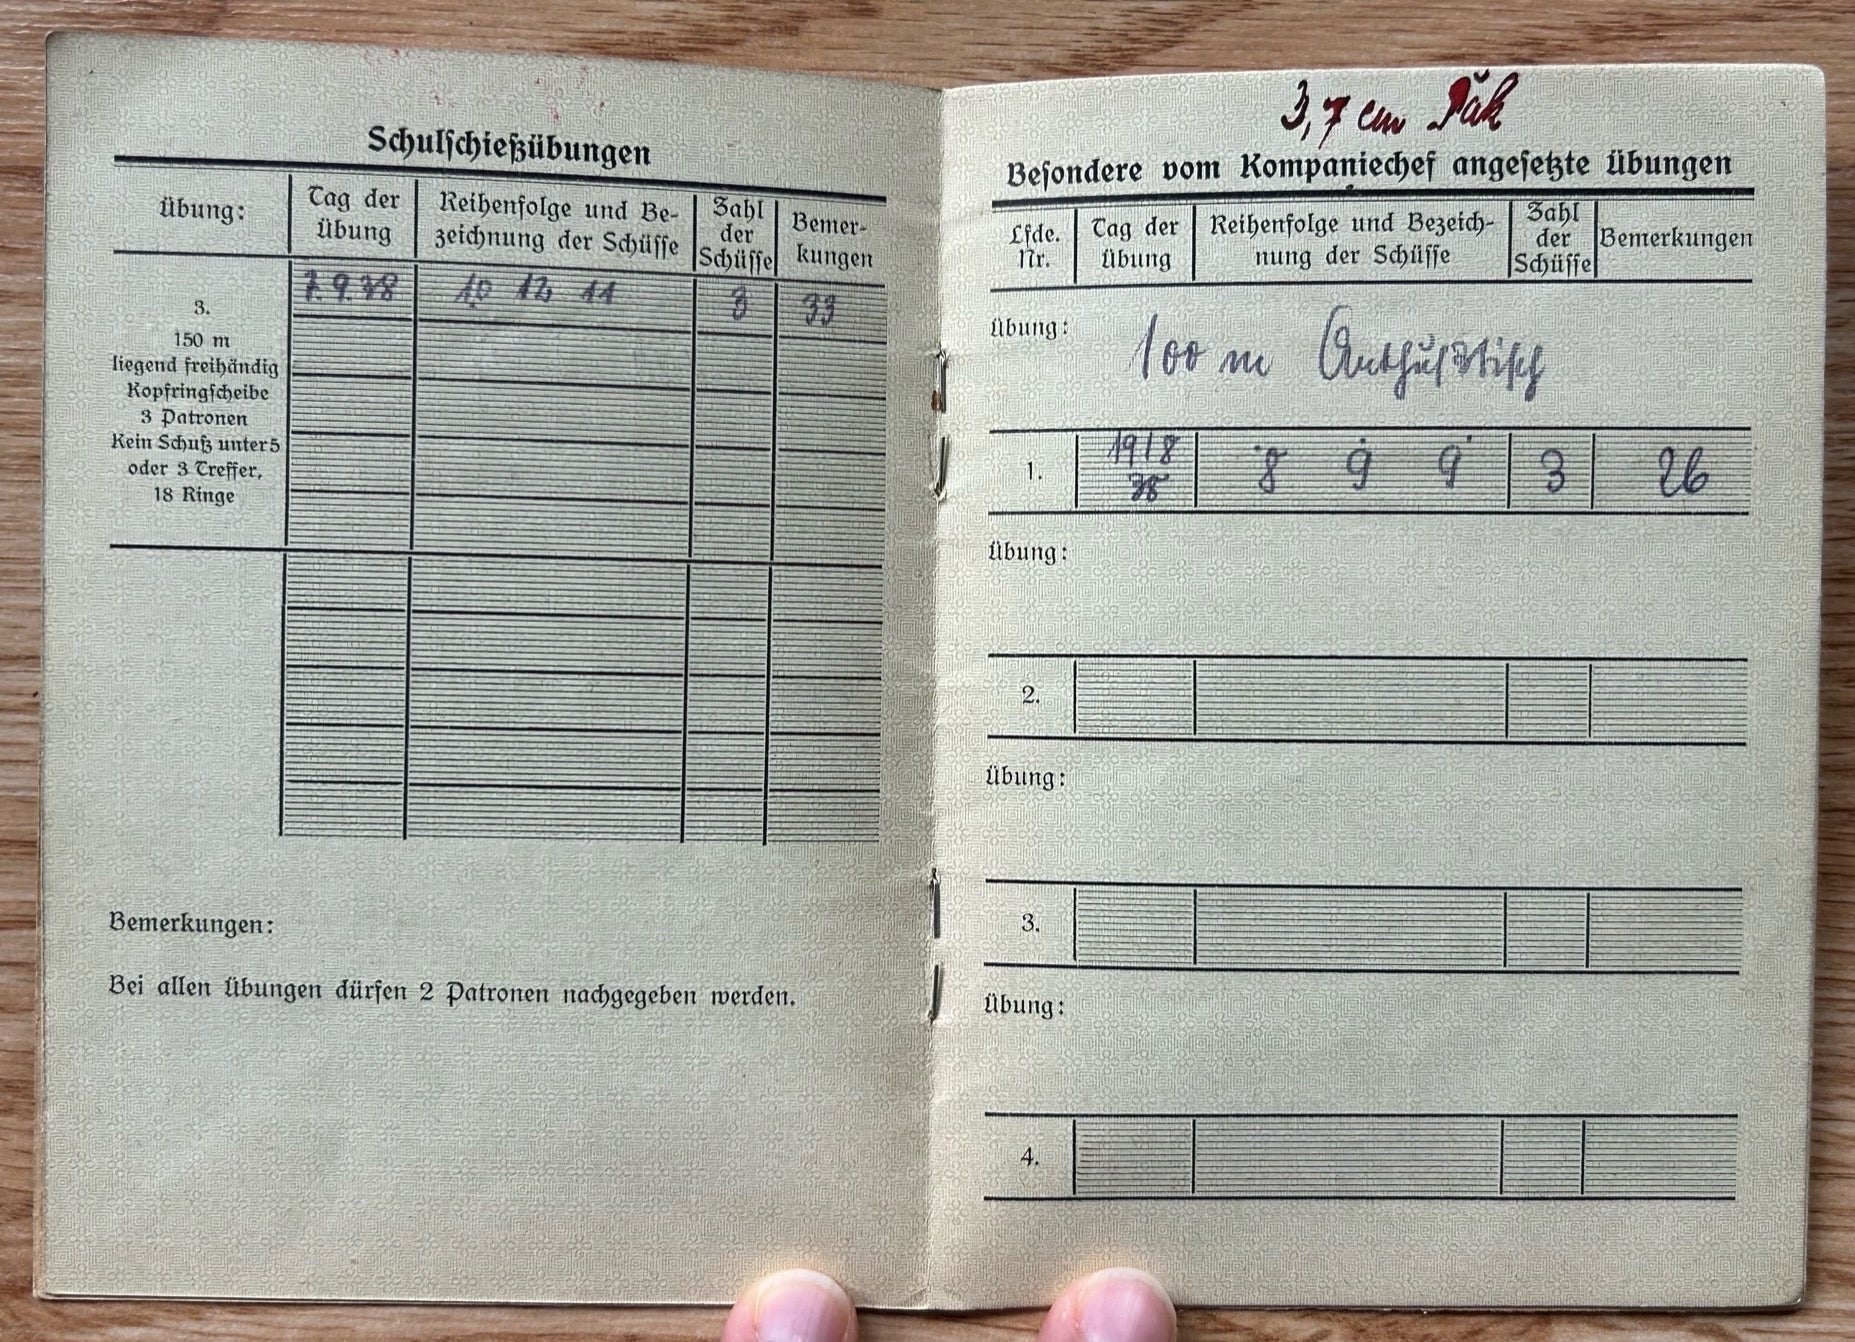 Schulschießübungen
Übung:
Tag der
Übung
Reihenfolge und Be-
zeichnung der Schüsse
Zahl
der
Schüsse
Bemer-
kungen
3.
150 m
liegend freihändig
Kopfringscheibe
3 Patronen
Kein Schuß unter 5
oder 3 Treffer,
18 Ringe
7.9.38 10 12 11 3 33
Bemerkungen:
Bei allen Übungen dürfen 2 Patronen nachgegeben werden.
3,7 cm Pak
Besondere vom Kompaniechef angesetzte Übungen
Lfde.
Nr.
Tag der
Übung
Reihenfolge und Bezeich-
nung der Schüsse
Zahl
der
Schüsse
Bemerkungen
Übung: 100 m
1. 19/8 8 9 9 3 26
38
Übung:
2.
Übung:
3.
Übung:
4.